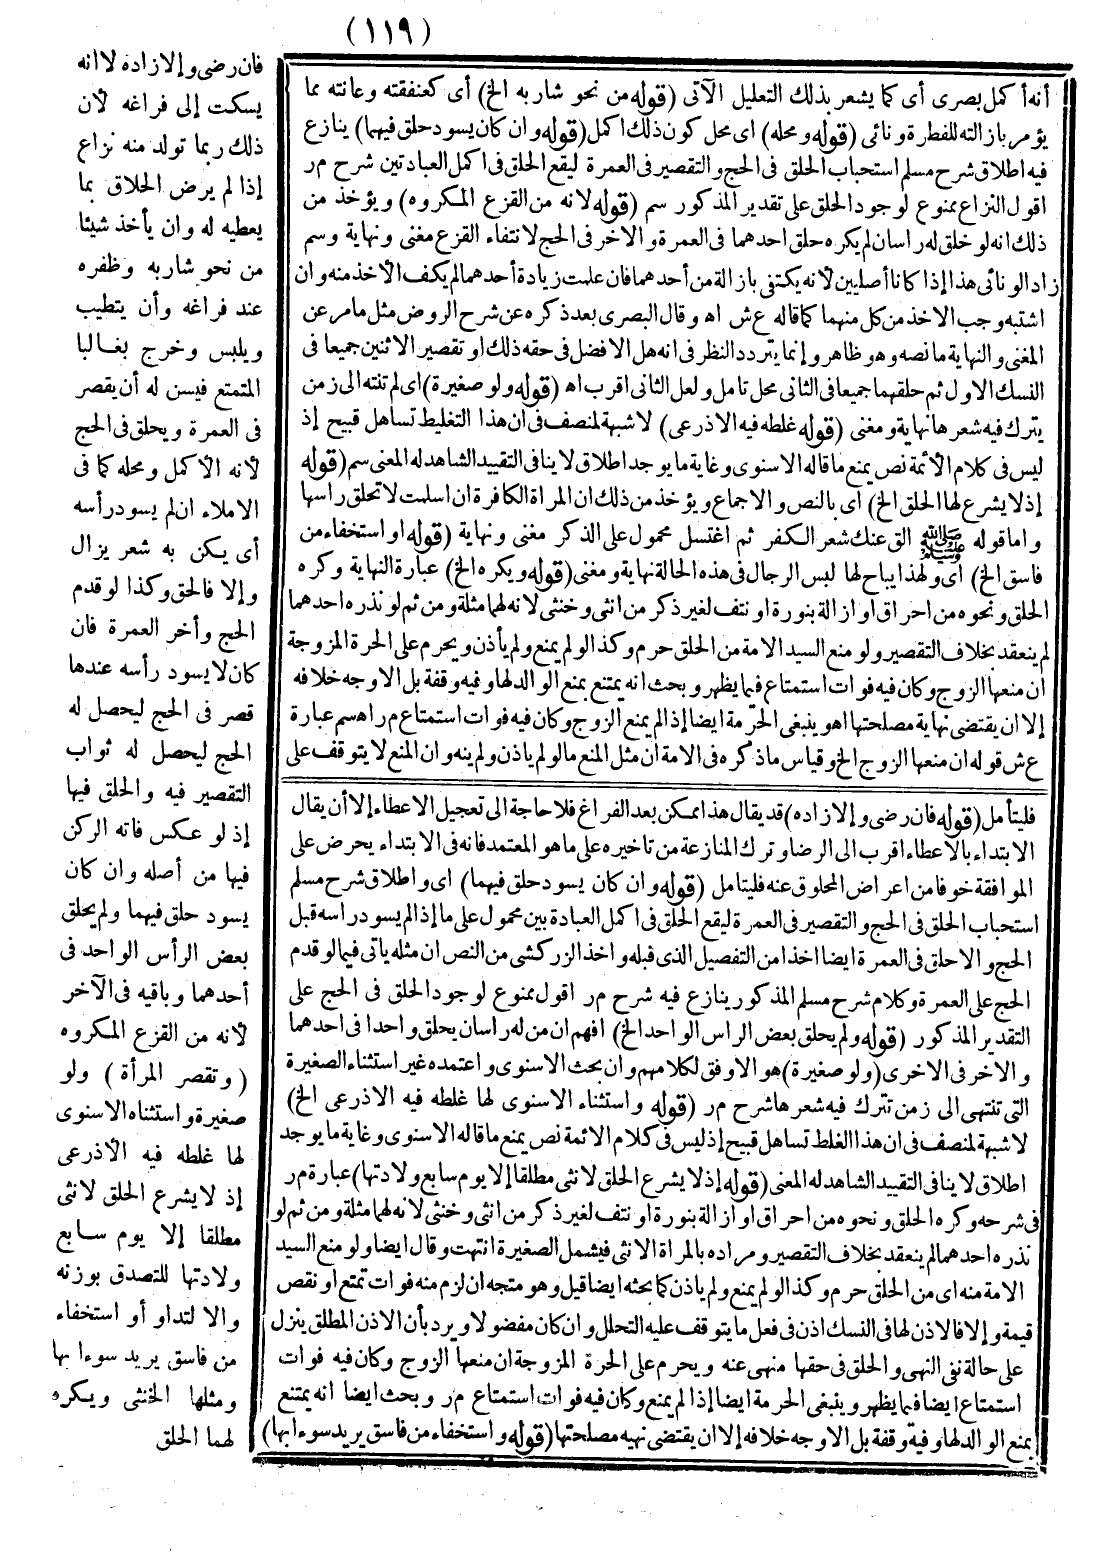 (١١٩)
فان رضى وإلا زاده لا انه
يسكت إلى فراغه لأن
ذلك ربما تولد منه نزاع
إذا لم يرض الحلاق بما
يعطيه له وان يأخذ شيئا
من نحو شاربه وظفره
عند فراغه وأن يتطيب
ويلبس وخرج بغالبا
المتمتع فيسن له أن يقصر
فى العمرة ويحلق فى الحج
لأنه الأكمل ومحله كما فى
الاملاء ان لم يسود رأسه
أى يكن به شعر يزال
وإلا فالحلق وكذا لو قدم
الحج وأخر العمرة فان
كان لا يسود رأسه عندها
قصر فى الحج ليحصل له
الحج ليحصل له ثواب
التقصير فيه والحلق فيها
إذ لو عكس فاته الركن
فيها من أصله وان كان
يسود حلق فيهما ولم يحلق
بعض الرأس الواحد فى
أحدهما وباقيه فى الآخر
لأنه من القزع المكروه
(وتقصر المرأة) ولو
صغيرة واستثناه الاسنوى
لها غلطه فيه الأذرعى
إذ لا يشرع الحلق لانثى
مطلقا إلا يوم سابع
ولادتها للتصدق بوزنه
والا لتداو أو استخفاء
من فاسق يريد سوءا بها
ومثلها الخنثى ويكره
لهما الحلق
أنه أكمل بصرى أى كما يشعر بذلك التعليل الآتى (قوله من نحو شاربه الخ) أى كعنفقته وعانته مما
يؤمر بازالته للفطرة ونائى (قوله ومحله) اى محل كون ذلك اكمل (قوله وان كان يسود حلق فيهما) ينازع
فيه اطلاق شرح مسلم استحباب الحلق فى الحج والتقصير فى العمرة ليقع الحلق فى اكمل العبادتين شرح مر
اقول النزاع بمنوع لوجود الحلق على تقدير المذكور سم (قوله لانه من القزع المكروه) ويؤخذ من
ذلك انه لو خلق له راسان لم يكره حلق احدهما فى العمرة والاخر فى الحج لانتفاء القزع مغنى ونهاية وسم
زاد الونائى هذا إذا كانا أصليين لأنه يكتفى بازالة من أحدهما فان علمت زيادة أحدهما لم يكف الأخذ منه وان
اشتبه وجب الاخذ من كل منهما كما قاله ع ش اه وقال البصرى بعد ذكره عن شرح الروض مثل ما مر عن
المغنى والنهاية ما نصه وهو ظاهر وإنما يتردد النظر فى انه هل الافضل فى حقه ذلك او تقصير الاثنين جميعا فى
النسك الاول ثم حلقهما جميعا فى الثانى محل تامل ولعل الثانى اقرب اه (قوله ولو صغيرة) اى لم تنته الى زمن
يترك فيه شعرها نهاية ومغنى (قوله غلطه فيه الاذرعى) لا شبهة لمنصف فى ان هذا التغليط تساهل قبيح إذ
ليس فى كلام الأئمة نص يمنع ما قاله الاسنوى وغاية ما يوجد اطلاق لا ينافى التقييد الشاهد له المعنى سم (قوله
إذ لا يشرع لها الحلق الخ) اى بالنص والاجماع ويؤخذ من ذلك ان المراة الكافرة ان اسلمت لا تحلق راسها
واما قوله ﷺ الق عنك شعر الكفر ثم اغتسل محمول على الذكر مغنى ونهاية (قوله او استخفاء من
فاسق الخ) اى ولهذا يباح لها لبس الرجال فى هذه الحالة نهاية ومغنى (قوله ويكره الخ) عبارة النهاية وكره
الحلق ونحوه من احراق او ازالة بنورة او نتف لغير ذكر من انثى وخنثى لانه لهما مثلة ومن ثم لو نذره احدهما
لم ينعقد بخلاف التقصير ولو منع السيد الامة من الحلق حرم وكذا لو لم يمنع ولم يأذن ويحرم على الحرة المزوجة
ان منعها الزوج وكان فيه فوات استمتاع فيما يظهر وبحث انه يمتنع بمنع الوالد لها وفيه وقفة بل الاوجه خلافه
إلا ان يقتضى نهاية مصلحتها اه وينبغى الحرمة ايضا إذا لم يمنع الزوج وكان فيه فوات استمتاع مر اه سم عبارة
ع ش قوله ان منعها الزوج الخ وقياس ما ذكره فى الامة ان مثل المنع ما لو لم ياذن ولم ينه وان المنع لا يتوقف على
فليتأمل (قوله فان رضى وإلا زاده) قد يقال هذا ممكن بعد الفراغ فلا حاجة الى تعجيل الاعطاء إلا أن يقال
الابتداء بالاعطاء اقرب الى الرضا وترك المنازعة من تاخيره على ما هو المعتمد فانه فى الابتداء يحرض على
الموافقة خوفا من اعراض المحلوق عنه فليتامل (قوله وان كان يسود حلق فيهما) اى واطلاق شرح مسلم
استحباب الحلق فى الحج والتقصير فى العمرة ليقع الحلق فى اكمل العبادة بين محمول على ما إذا لم يسود راسه قبل
الحج والا حلق فى العمرة ايضا اخذا من التفصيل الذى قبله واخذ الزركشى من النص ان مثله ياتى فيما لو قدم
الحج على العمرة وكلام شرح مسلم المذكور ينازع فيه شرح مر اقول بمنوع لوجود الحلق فى الحج على
التقدير المذكور (قوله ولم يحلق بعض الراس الواحد الخ) افهم ان من له راسان يحلق واحدا فى احدهما
والاخر فى الاخرى (ولو صغيرة) هو الاوفق لكلامهم وان بحث الاسنوى واعتمده غير استثناء الصغيرة
التى تنتهى الى زمن تترك فيه شعرها شرح مر (قوله واستثناء الاسنوى لها غلطه فيه الاذرعى الخ)
لا شبهة لمنصف فى ان هذا الغلط تساهل قبيح إذ ليس فى كلام الائمة نص يمنع ما قاله الاسنوى وغاية ما يوجد
اطلاق لا ينافى التقييد الشاهد له المعنى (قوله إذ لا يشرع الحلق لانثى مطلقا إلا يوم سابع ولادتها) عبارة مر
فى شرحه وكره الحلق ونحوه من احراق او ازالة بنورة او نتف لغير ذكر من انثى وخنثى لانه لهما مثلة ومن ثم لو
نذره احدهما لم ينعقد بخلاف التقصير ومراده بالمراة الانثى فيشمل الصغيرة انتهت وقال ايضا ولو منع السيد
الامة منه اى من الحلق حرم وكذا لو لم يمنع ولم ياذن كما بحثه ايضا قيل وهو متجه ان لزم منه فوات تمتع او نقص
قيمة وإلا فالاذن لها فى النسك اذن فى فعل ما يتوقف عليه التحلل وان كان مفضولا ويرد بأن الاذن المطلق ينزل
على حالة نفى النهى والحلق فى حقها منهى عنه ويحرم على الحرة المزوجة ان منعها الزوج وكان فيه فوات
استمتاع ايضا فيما يظهر وينبغى الحرمة ايضا إذا لم يمنع وكان فيه فوات استمتاع مر وبحث ايضا انه يمتنع
بمنع الوالد لها وفيه وقفة بل الاوجه خلافه إلا ان يقتضى نهيه مصلحتها (قوله واستخفاء من فاسق يريد سوءا بها)